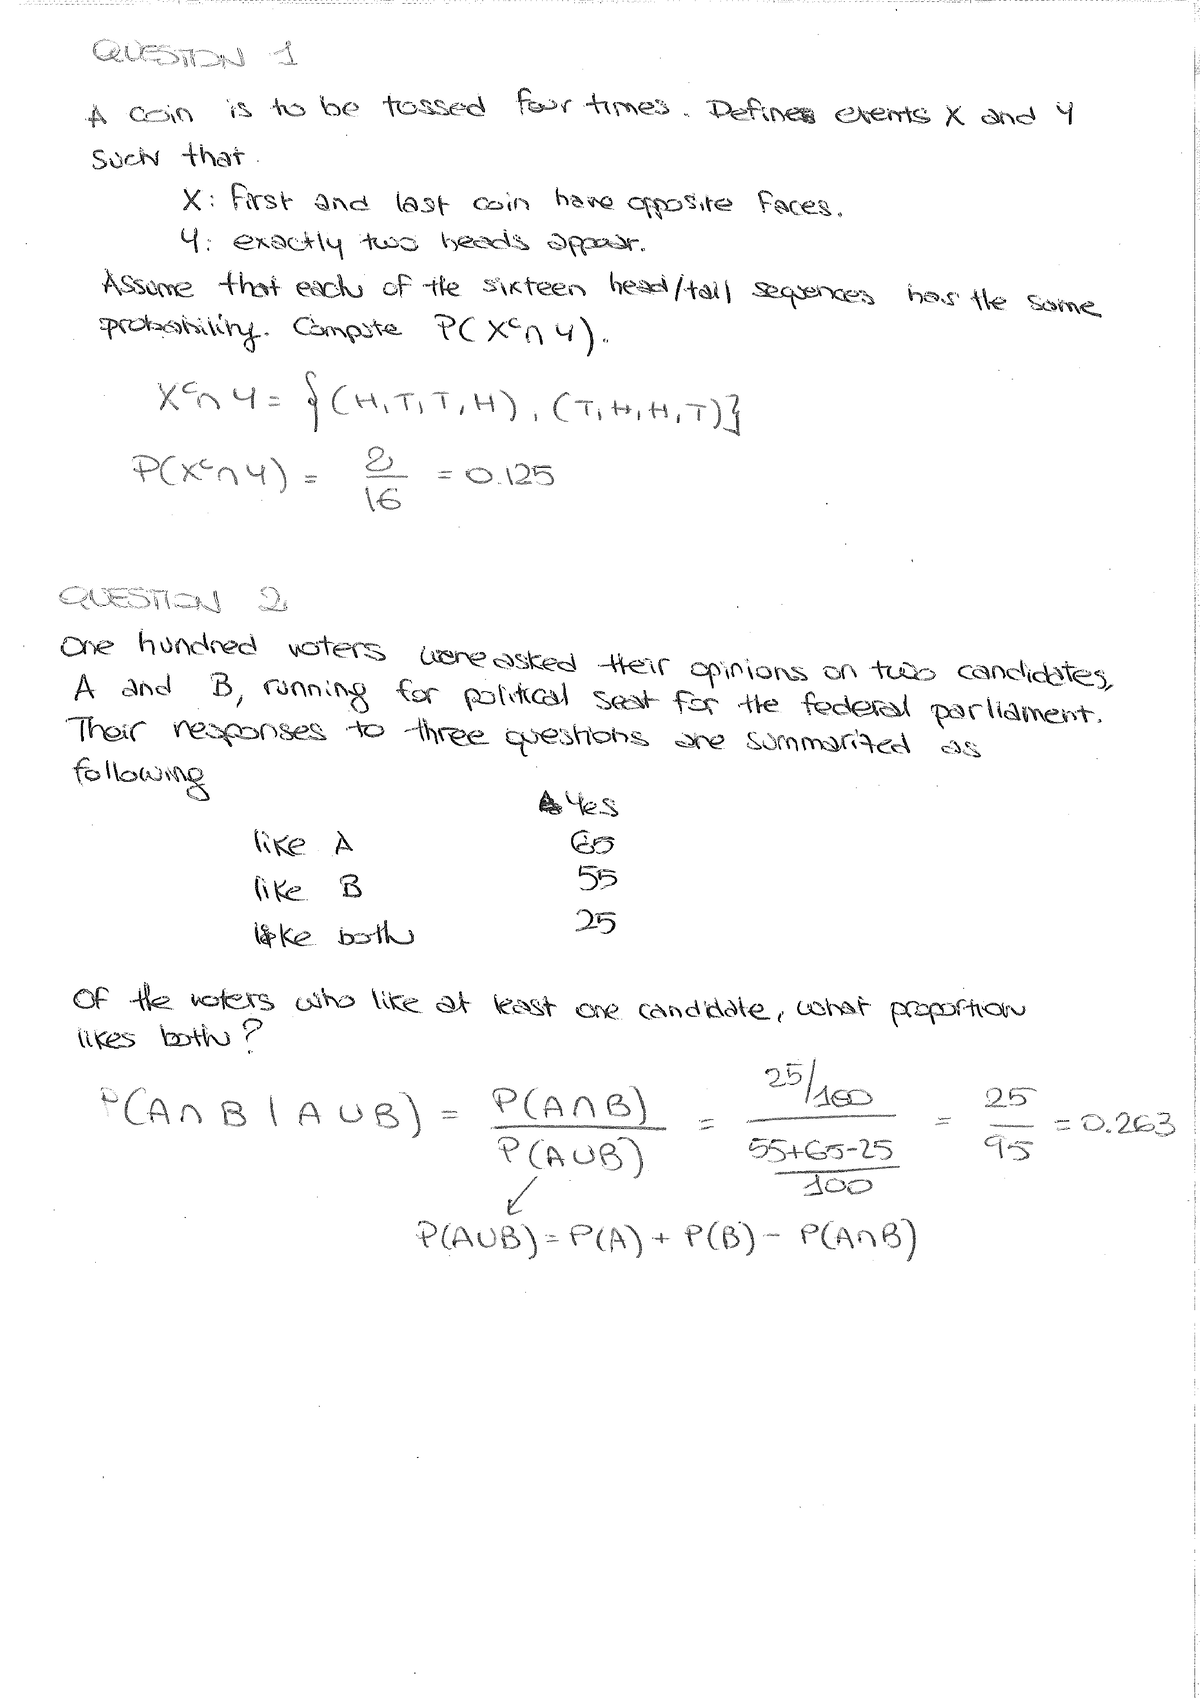 QUESTION 1
A coin is to be tossed four times. Defines events X and Y
such that
X: First and last coin have opposite faces.
Y: exactly two heads appear.
Assume that each of the sixteen head/tail sequences has the same
probability. Compute P(Xᶜ∩Y).
Xᶜ∩Y = {(H,T,T,H), (T,H,H,T)}
P(Xᶜ∩Y) = 2/16 = 0.125
QUESTION 2
One hundred voters were asked their opinions on two candidates,
A and B, running for political seat for the federal parliament.
Their responses to three questions are summarized as
following
Yes
like A 65
like B 55
like both 25
Of the voters who like at least one candidate, what proportion
likes both?
P(A∩B | A∪B) = P(A∩B)/P(A∪B) = (25/100)/((55+65-25)/100) = 25/95 = 0.263
P(A∪B) = P(A) + P(B) - P(A∩B)